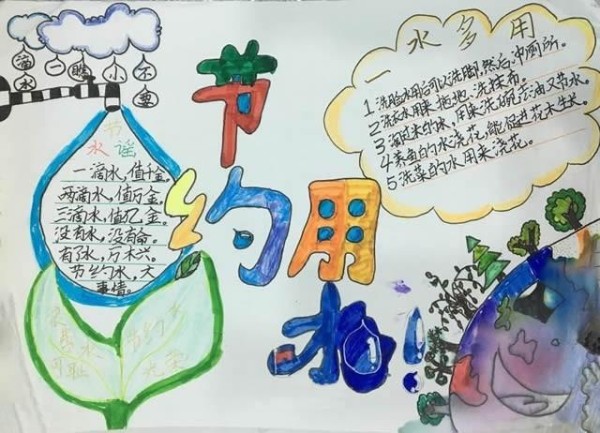 不要小瞧一滴水
节约用水!
一水多用
1 洗脸水用后可以洗脚,然后冲厕所。
2 洗衣水用来拖地、洗抹布。
3 淘过米的水,用来洗碗去油又节水。
4 养鱼的水浇花,能促进花木生长。
5 洗菜的水用来浇花。
节
水谣
一滴水,值千金,
两滴水,值万金,
三滴水,值亿金。
没有水,没有命。
有了水,万木兴。
节约水,大
事情。
水
可耻
节约水
光荣